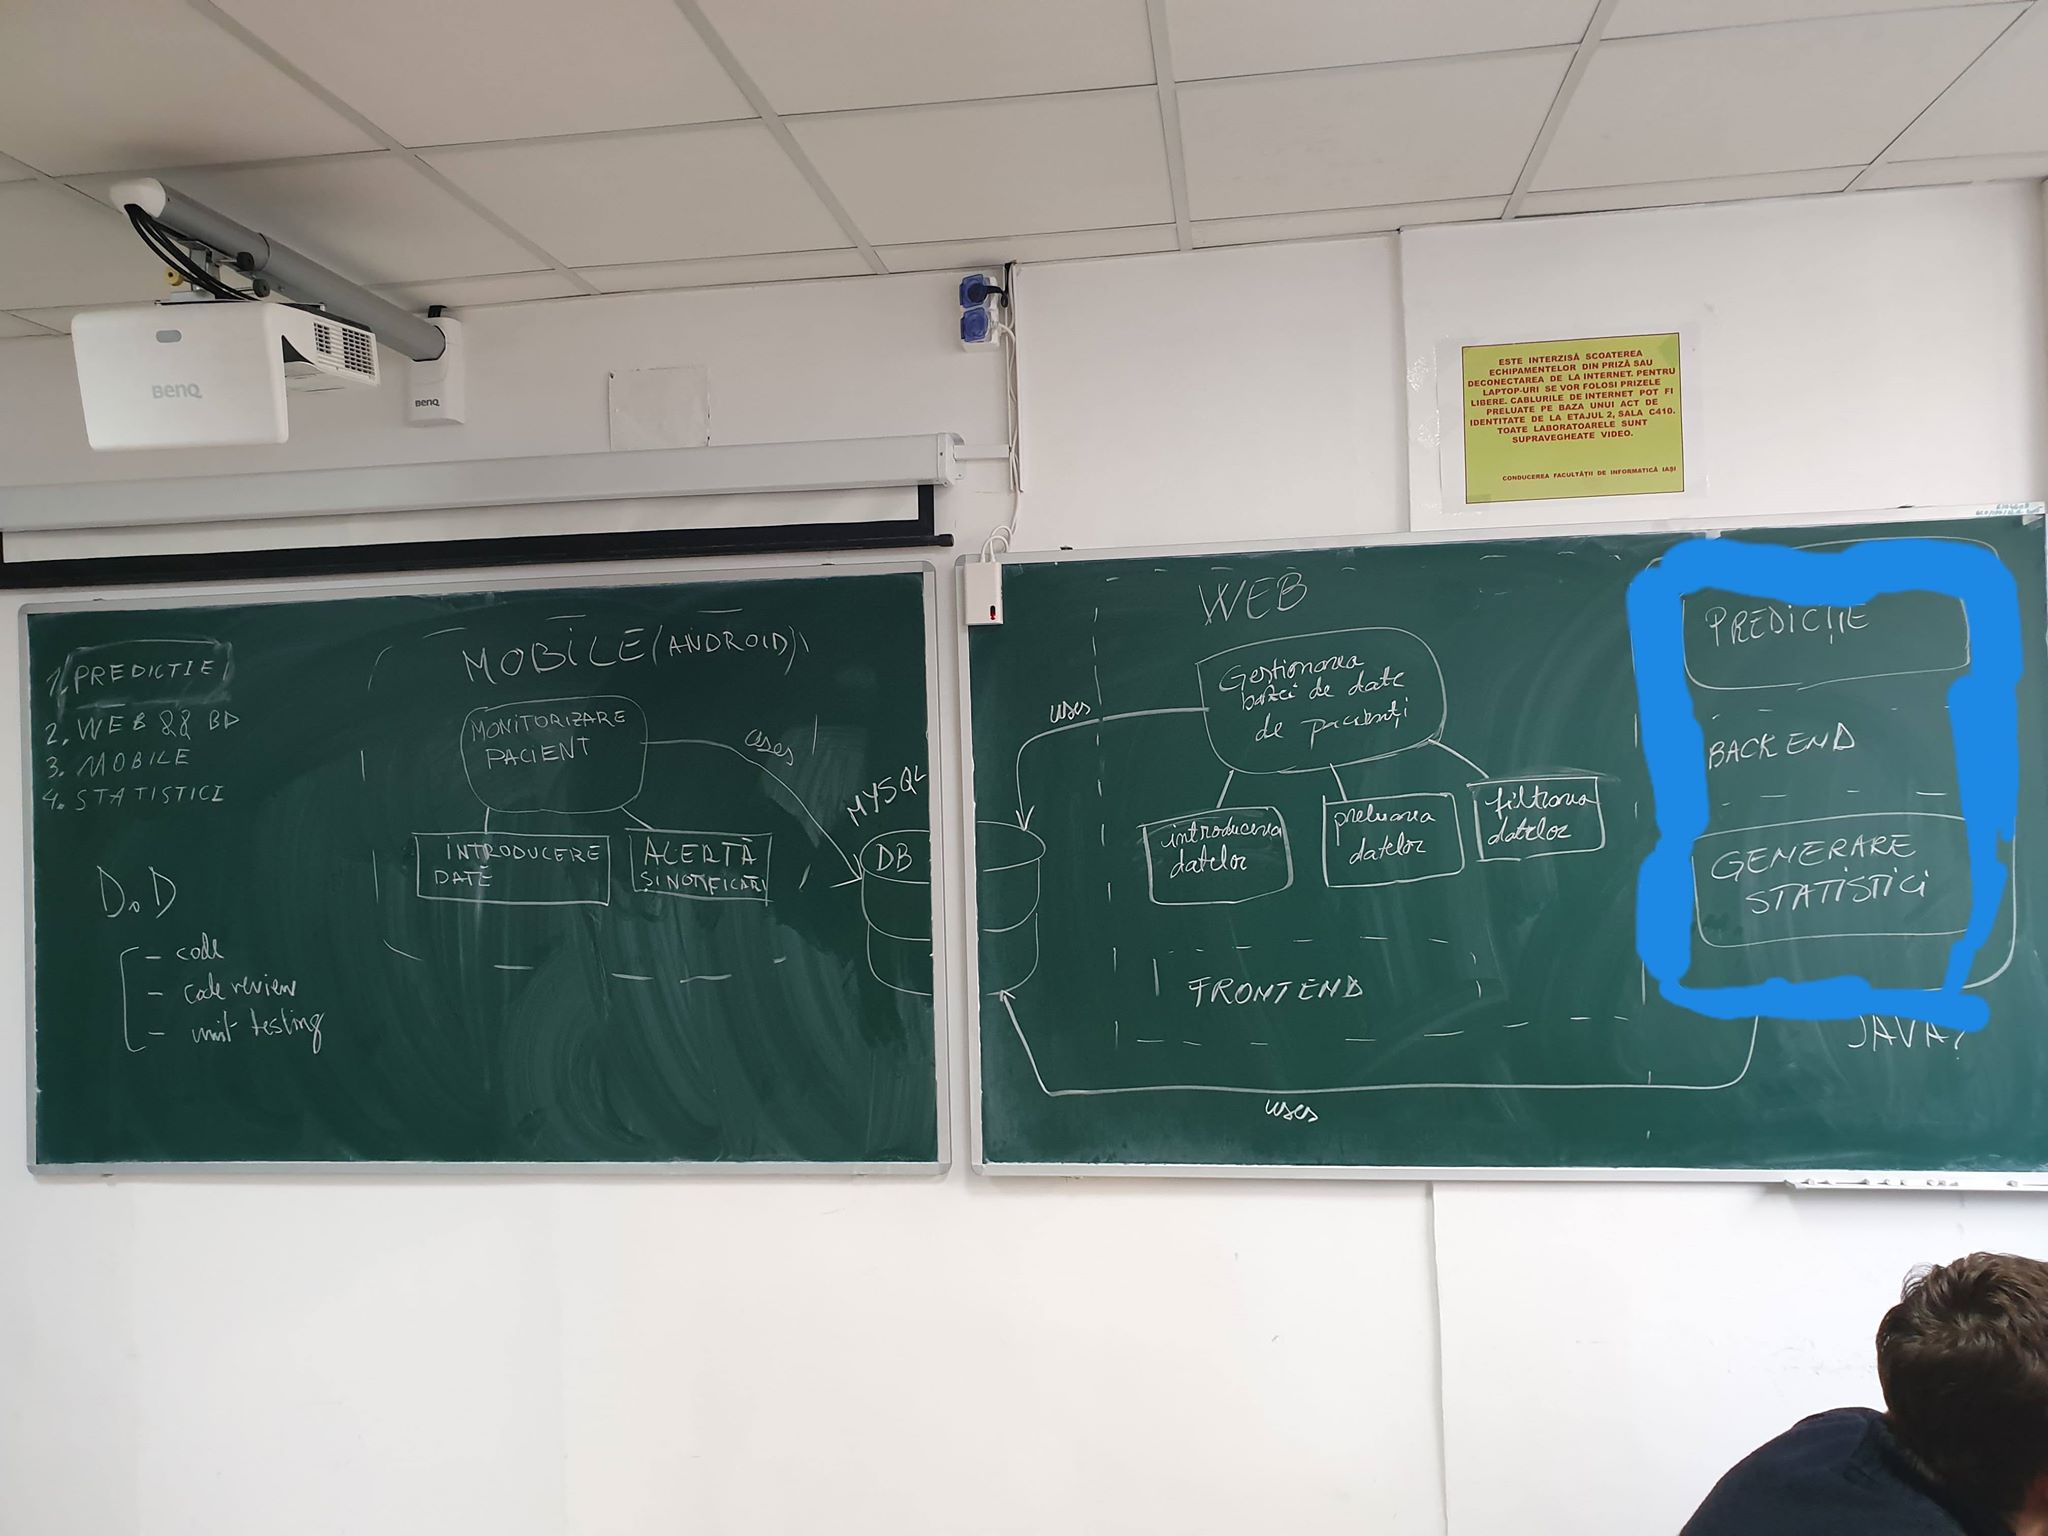 BenQ
BenQ
ESTE INTERZISĂ SCOATEREA
ECHIPAMENTELOR DIN PRIZĂ SAU
DECONECTAREA DE LA INTERNET. PENTRU
LAPTOP-URI SE VOR FOLOSI PRIZELE
LIBERE. CABLURILE DE INTERNET POT FI
PRELUATE PE BAZA UNUI ACT DE
IDENTITATE DE LA ETAJUL 2, SALA C410.
TOATE LABORATOARELE SUNT
SUPRAVEGHEATE VIDEO.
CONDUCEREA FACULTĂȚII DE INFORMATICĂ IAȘI
1. PREDICTIE
2. WEB && BD
3. MOBILE
4. STATISTICI
DoD
- code
- code review
- unit testing
MOBILE (ANDROID)
MONITORIZARE
PACIENT
uses
INTRODUCERE
DATE
ALERTĂ
ȘI NOTIFICĂRI
MYSQL
DB
WEB
uses
Gestionarea
bazei de date
de pacienți
introducerea
datelor
preluarea
datelor
filtrarea
datelor
FRONTEND
uses
PREDICȚIE
BACKEND
GENERARE
STATISTICI
JAVA?